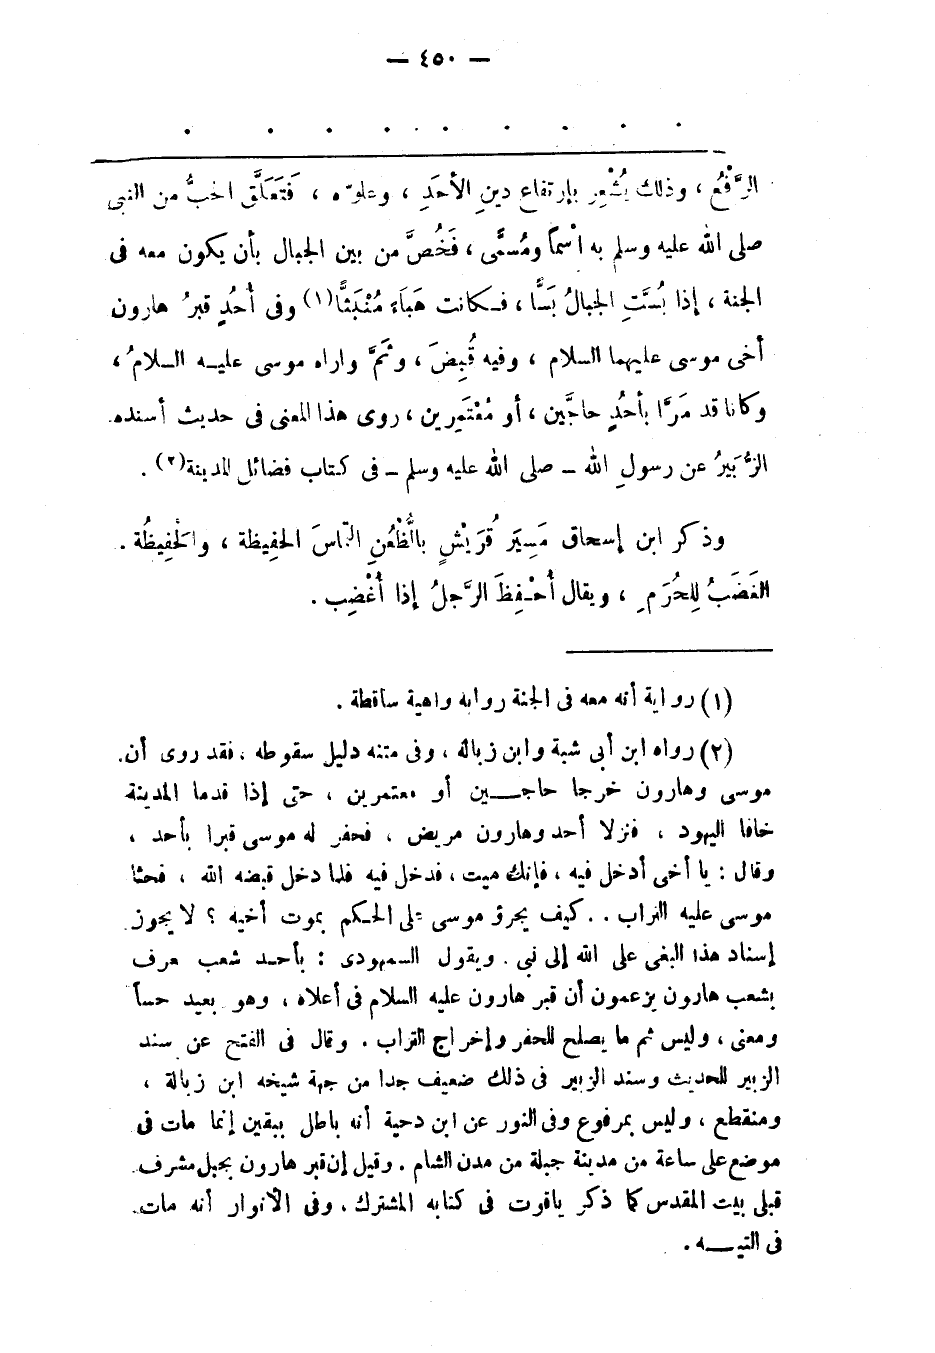 — ٤٥٠ —
. . . . . . . . . .
الرَّفْعُ ، وذلك يُشْعِر بإرتفاع دينِ الأحَدِ ، وعلوّه ، فَتَعَلَّق الحبُّ من النبى
صلى الله عليه وسلم به اسْماً ومُسمًّى ، فَخُصَّ من بين الجبال بأن يكون معه فى
الجنة ، إذا بُسَّتِ الجبالُ بَسًّا ، فـكانت هَبَاءً مُنْبَثًّا(١) وفى أُحُدٍ قبرُ هارون
أخى موسى عليهما السلام ، وفيه قُبِضَ ، وثَمَّ واراه موسى عليـه السلامُ ،
وكانا قد مَرَّا بأُحُدٍ حاجَّين ، أو مُعْتَمِرين ، روى هذا المعنى فى حديث أسنده
الزُّبَيرُ عن رسولِ الله — صلى الله عليه وسلم — فى كتاب فضائل المدينة(٢) .
وذكر ابن إسحاق مَسِيَر قُرَيْشٍ بالُّظْعُنِ التماسَ الحفِيظة ، والحَفِيظُة .
الغَضَبُ لِلحُرَمِ ، ويقال أُحْـفِظَ الرَّجلُ إذا أُغْضِب .
(١) رواية أنه معه فى الجنة رواية واهية ساقطة .
(٢) رواه ابن أبى شبة وابن زبالة ، وفى متنه دليل سقوطه . فقد روى أن
موسى وهارون خرجا حاجـــين أو معتمرين ، حتى إذا قدما المدينة
خافا اليهود ، فنزلا أحد وهارون مريض ، فحفر له موسى قبرا بأحد ،
وقال : يا أخى أدخل فيه ، فإنك ميت ، فدخل فيه فلما دخل قبضه الله ، فحثا
موسى عليه التراب . . كيف يجرؤ موسى على الحـكم بموت أخيه ؟ لا يجوز
إسناد هذا البغى على الله إلى نبى . ويقول السمهودى : بأحـد شعب عرف
بشعب هارون يزعمون أن قبر هارون عليه السلام فى أعلاه ، وهو بعيد حساً
ومعنى ، وليس ثم ما يصلح للحفر وإخراج التراب . وقال فى الفتح عن سند
الزبير للحديث وسند الزبير فى ذلك ضعيف جدا من جهة شيخه ابن زبالة ،
ومنقطع ، وليس بمرفوع وفى النور عن ابن دحية أنه باطل بيقين إنما مات فى
موضع على ساعة من مدينة جبلة من مدن الشام . وقيل إن قبر هارون بجبل مشرف
قبلى بيت المقدس كما ذكر ياقوت فى كتابه المشترك . وفى الأنوار أنه مات
فى التيــه .